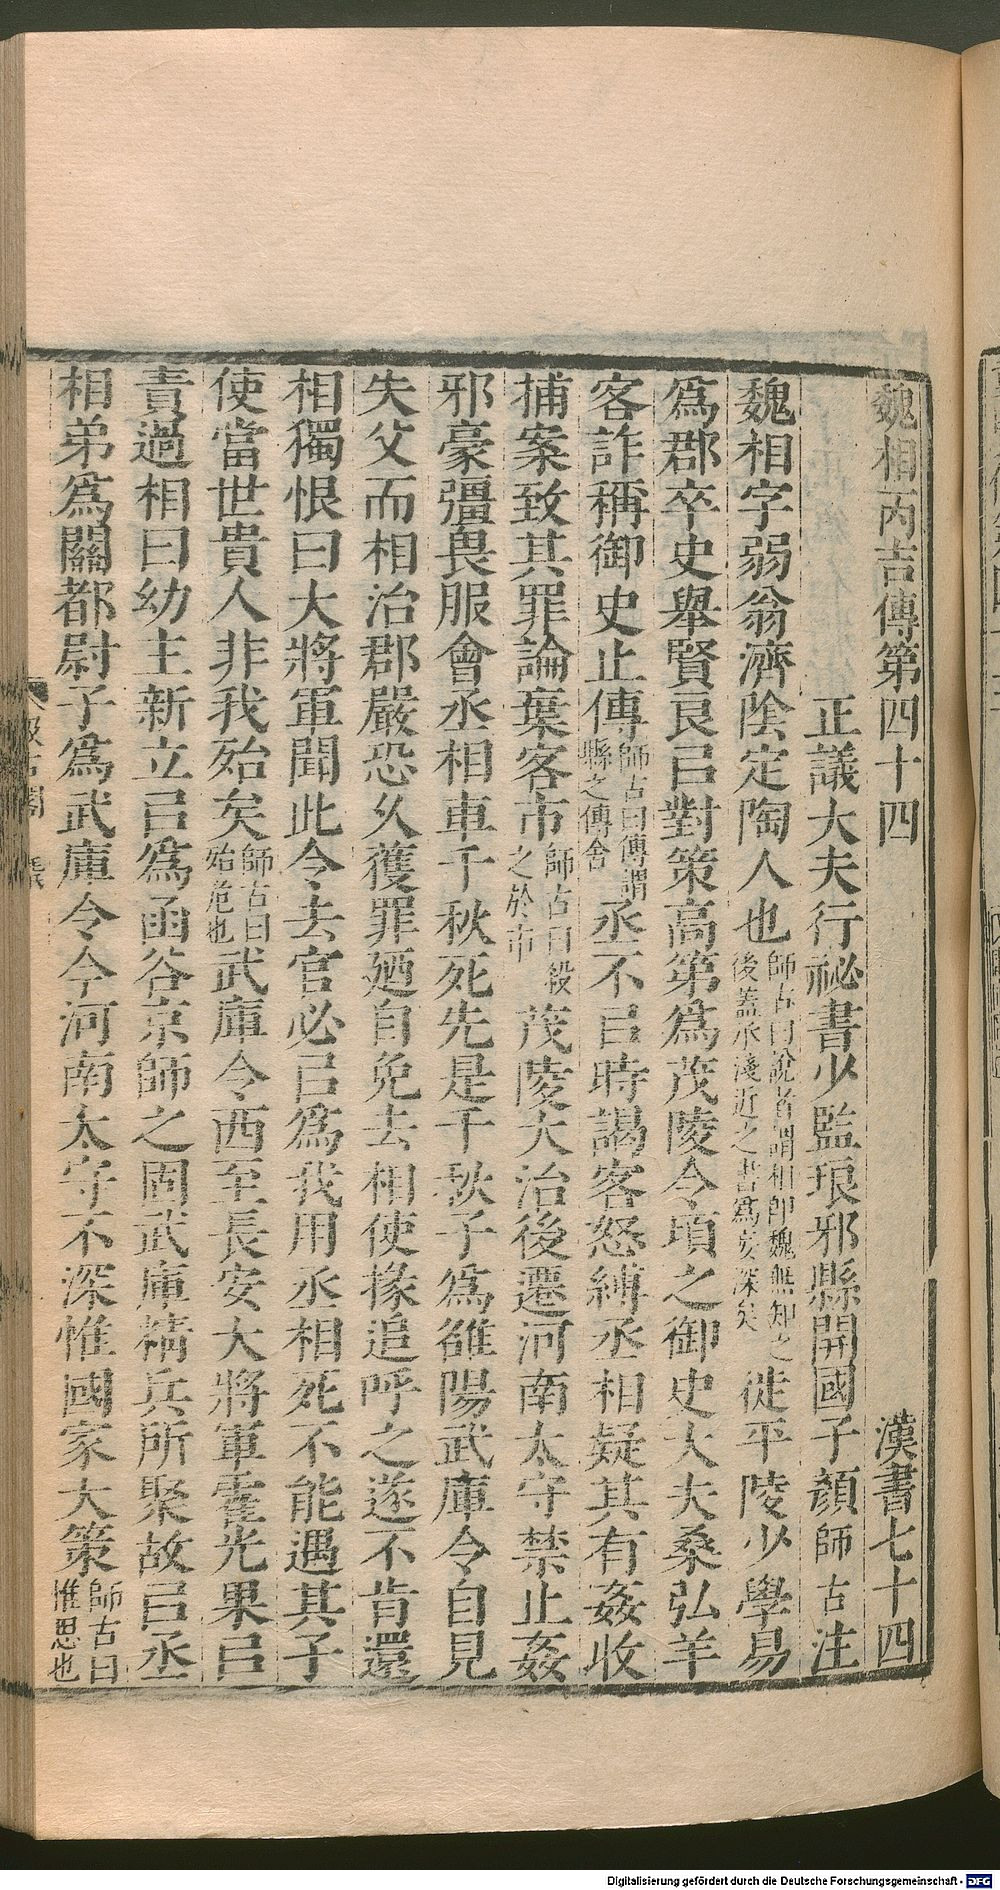 魏相丙吉傳第四十四 漢書七十四
正議大夫行祕書少監琅邪縣開國子顏師古注
魏相字弱翁濟陰定陶人也師古曰說者謂相即魏無知之後蓋承淺近之書爲妄深矣徙平陵少學易
爲郡卒史舉賢良㠯對策高第爲茂陵令頃之御史大夫桑弘羊
客詐稱御史止傳師古曰傳謂縣之傳舍丞不㠯時謁客怒縛丞相疑其有姦收
捕案致其罪論棄客市師古曰殺之於市茂陵大治後遷河南太守禁止姦
邪豪彊畏服會丞相車千秋死先是千秋子爲雒陽武庫令自見
失父而相治郡嚴恐久獲罪廼自免去相使掾追呼之遂不肯還
相獨恨曰大將軍聞此令去官必㠯爲我用丞相死不能遇其子
使當世貴人非我殆矣師古曰殆危也武庫令西至長安大將軍霍光果㠯
責過相曰幼主新立㠯爲函谷京師之固武庫精兵所聚故㠯丞
相弟爲關都尉子爲武庫令今河南太守不深惟國家大策師古曰惟思也
Digitalisierung gefördert durch die Deutsche Forschungsgemeinschaft - DFG